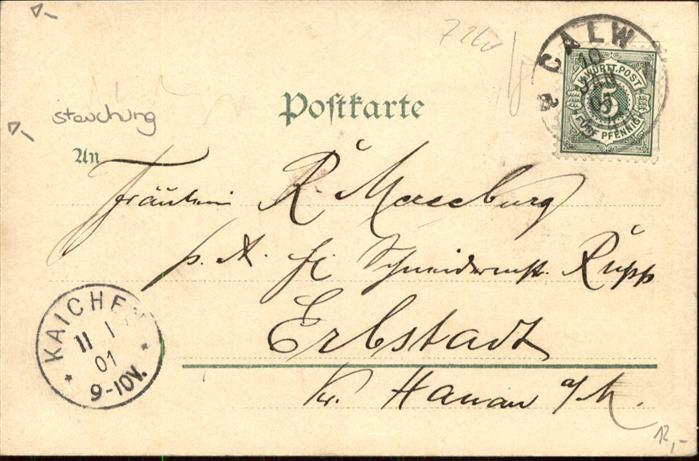 CALW
10
JAN
K. WÜRTT. POST
5
FÜNF PFENNIG
Postkarte
stauchung
An
Fräulein R. Merseburg
p. A. H. Schneidermstr. Rupp
Erbstadt
Kr. Hanau a/M.
KAICHEN
11 1
01
9-10V.
12,-